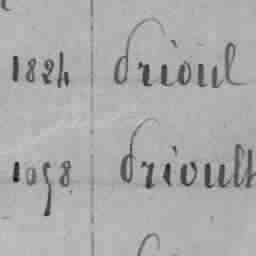 1824 Drioul
1098 Drioult